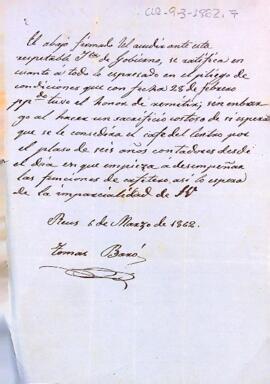 CLR-9-3-1862.7
El abajo firmado al acudir ante esta
respetable Jta de Gobierno, se ratifica en
cuanto a todo lo espresado en el pliego de
condiciones que con fecha 28 de febrero
ppdo tuvo el honor de remitir, sin embar
go al hacer un sacrificio costoso de si espera
que se le consedira el cafe del Centro por
el plaso de seis años contadores desde
el dia en que empieza a desempeñar
las funciones de cafetero, asi lo espera
de la imparcialidad de V
Reus 6 de Marzo de 1862.
Tomas Baró